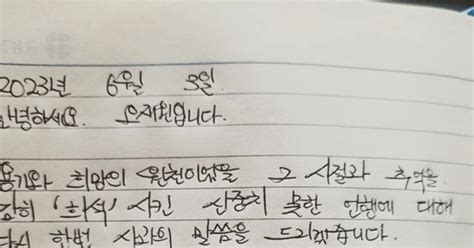 2023년 6월 3일.
안녕하세요. 오재원입니다.
용기와 희망의 원천이었을 그 시절과 추억을
감히 '희석' 시킨 신중치 못한 언행에 대해
다시 한번 사과의 말씀을 드리겠습니다.